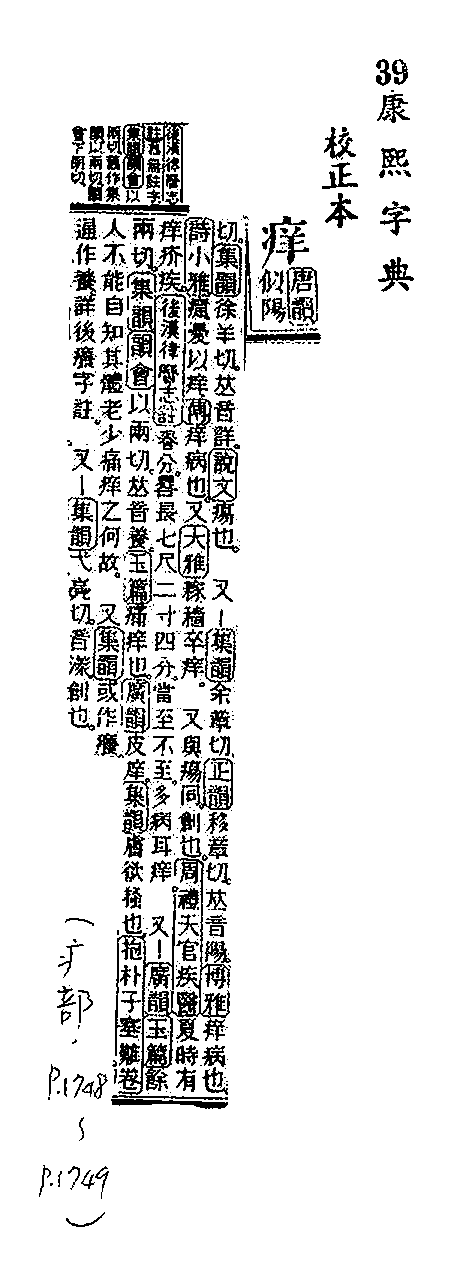 39康熙字典
校正本
痒
唐韻
似陽
切集韻徐羊切𠀤音詳說文瘍也 又一集韻余章切正韻移章切𠀤音陽博雅痒病也
詩小雅癙憂以痒傳痒病也又大雅稼穡卒痒 又與瘍同創也周禮天官疾醫夏時有
痒疥疾後漢律曆志註春分晷長七尺二寸四分當至不至多病耳痒 又一廣韻玉篇餘
兩切集韻韻會以兩切𠀤音養玉篇痛痒也廣韻皮痒集韻膚欲搔也抱朴子塞難卷
人不能自知其體老少痛痒之何故 又集韻或作癢
通作養詳後癢字註 又一集韻弋亮切音漾創也
後漢律曆志
註舊無註字
集韻韻會以
兩切舊作集
韻以兩切韻
會下兩切
(疒部，
P.1748
~
P.1749
)